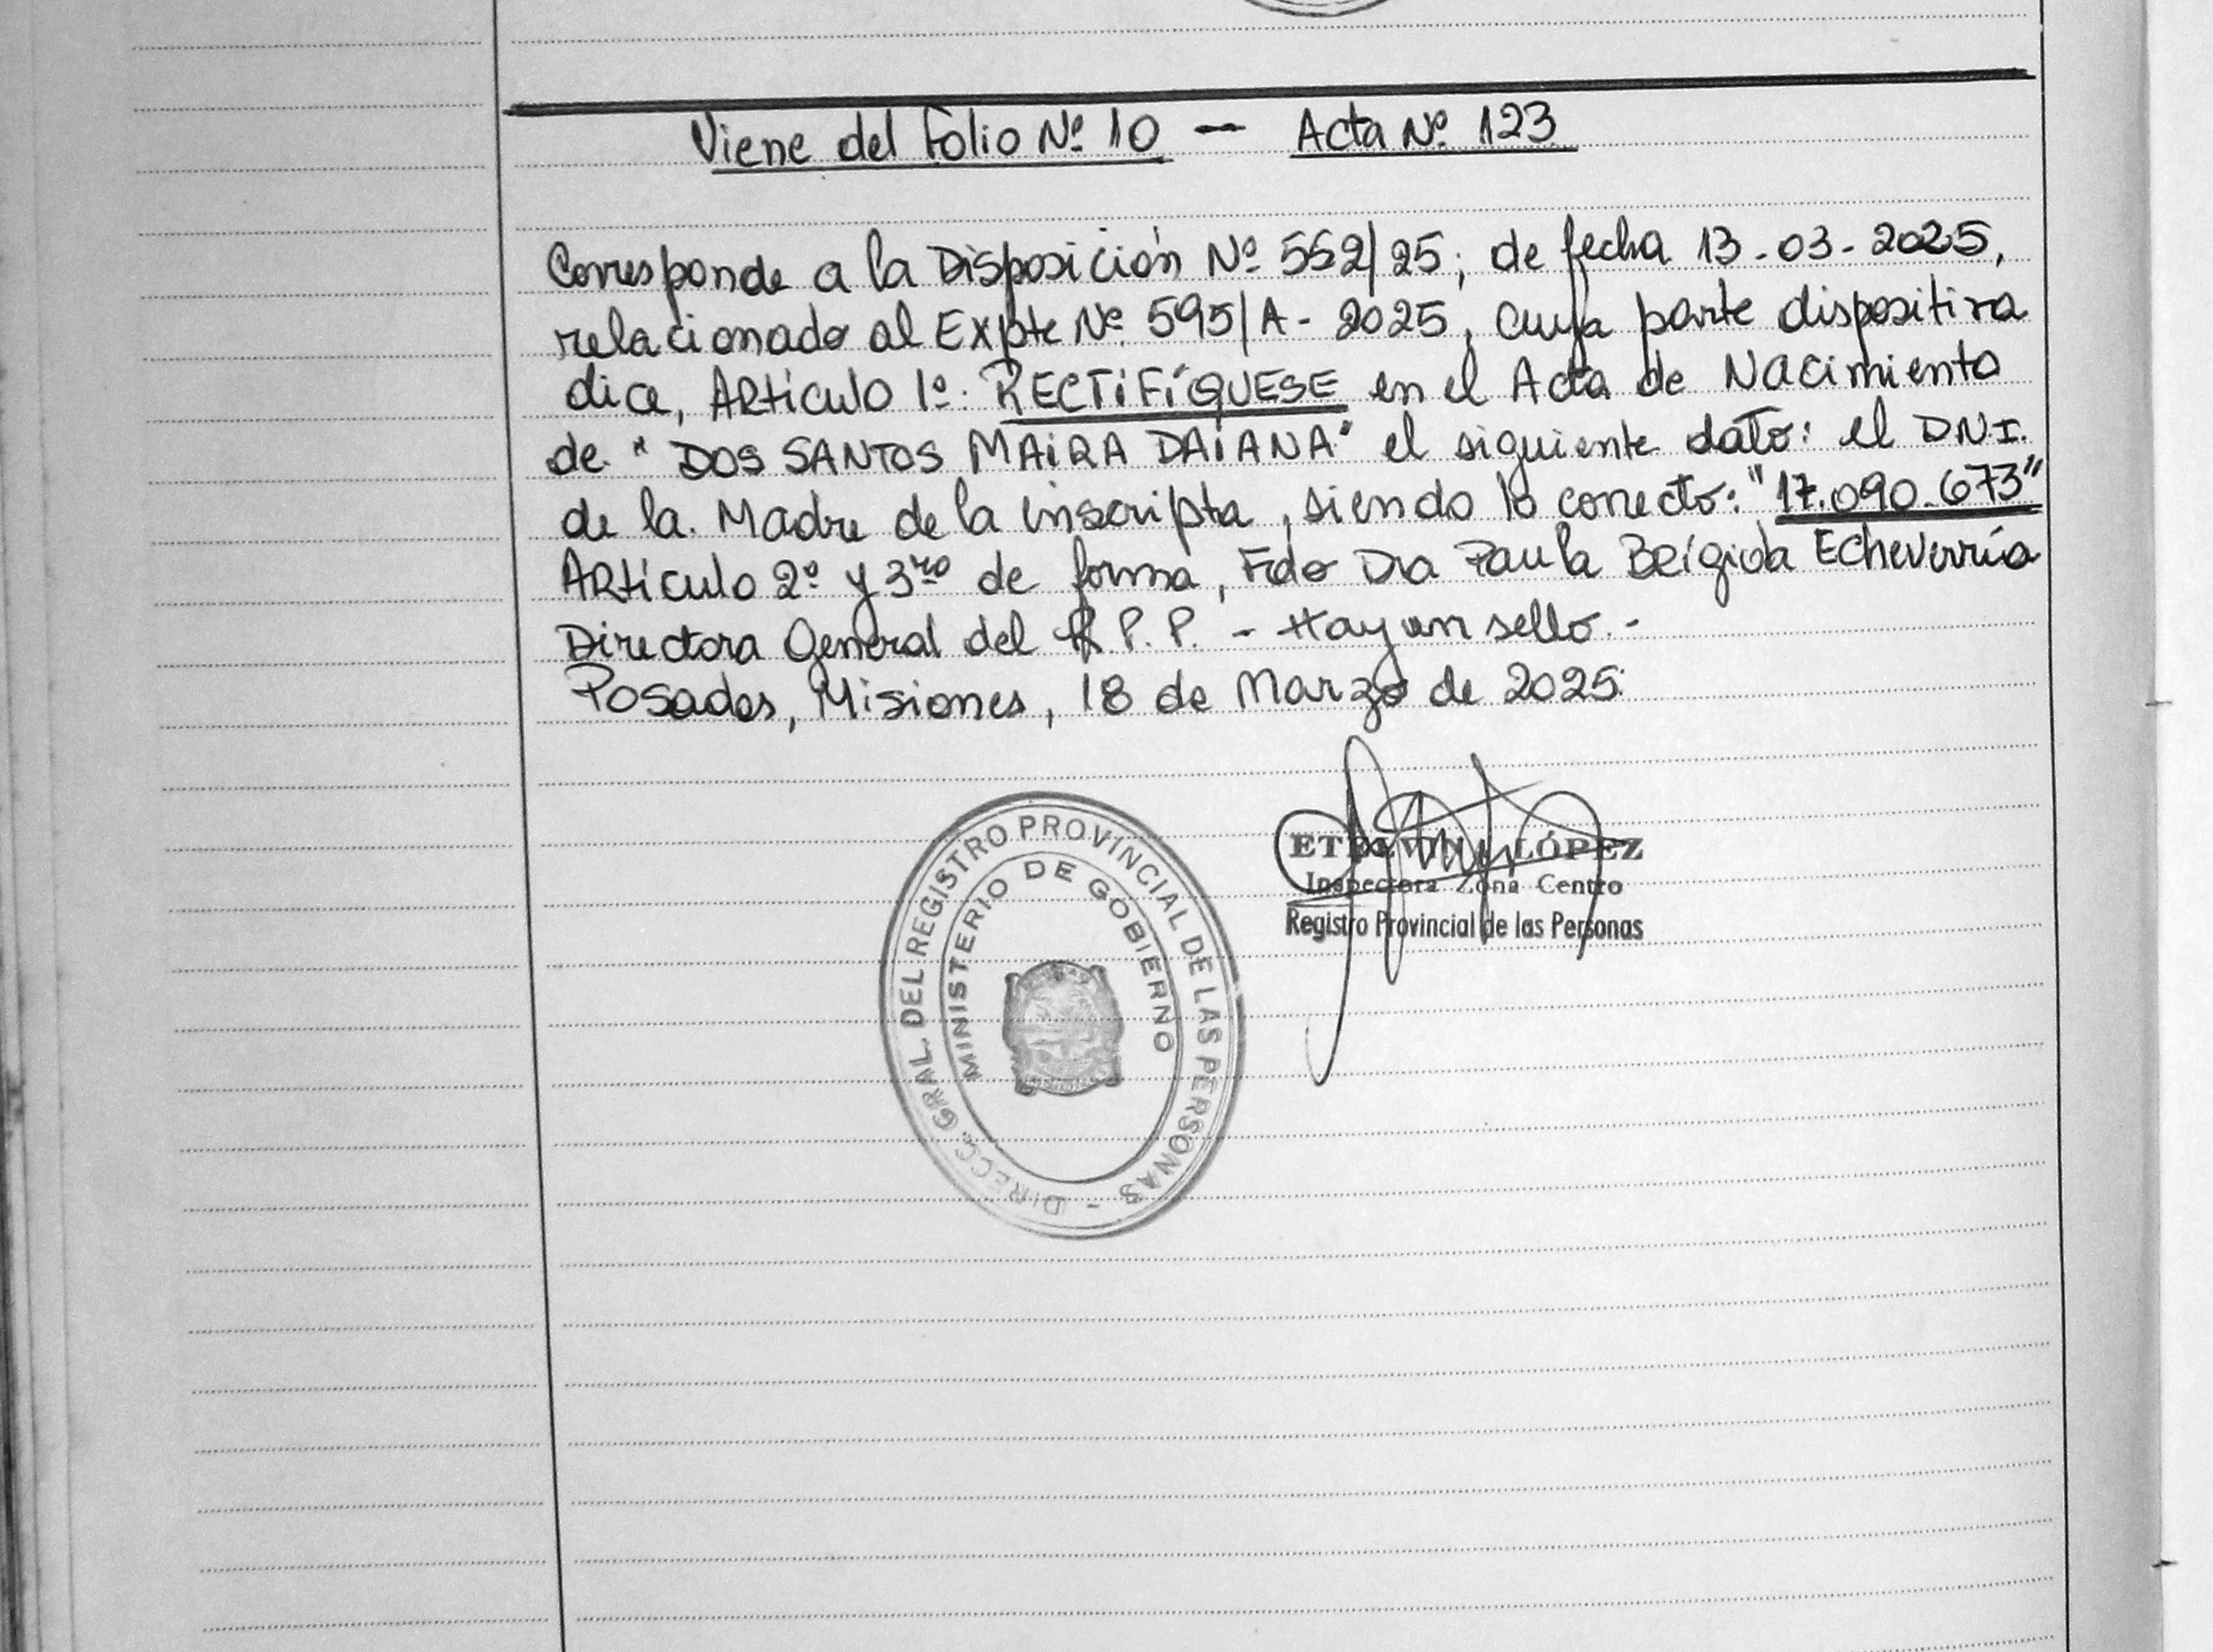 Viene del Folio Nº 10 — Acta Nº 123
Corresponde a la Disposición Nº 552/25; de fecha 13-03-2025,
relacionado al Expte Nº 595/A-2025, cuya parte dispositiva
dice, Artículo 1º: RECTIFÍQUESE en el Acta de Nacimiento
de "DOS SANTOS MAIRA DAIANA" el siguiente dato: el DNI.
de la. Madre de la inscripta, siendo lo correcto: "17.090.673"
Artículo 2º y 3ro de forma, Fdo Dra Paula Brígida Echeverría
Directora General del R.P.P. - Hay un sello.-
Posadas, Misiones, 18 de Marzo de 2025.
DIRECC. GRAL. DEL REGISTRO PROVINCIAL DE LAS PERSONAS -
MINISTERIO DE GOBIERNO
LÓPEZ
Inspectora Zona Centro
Registro Provincial de las Personas